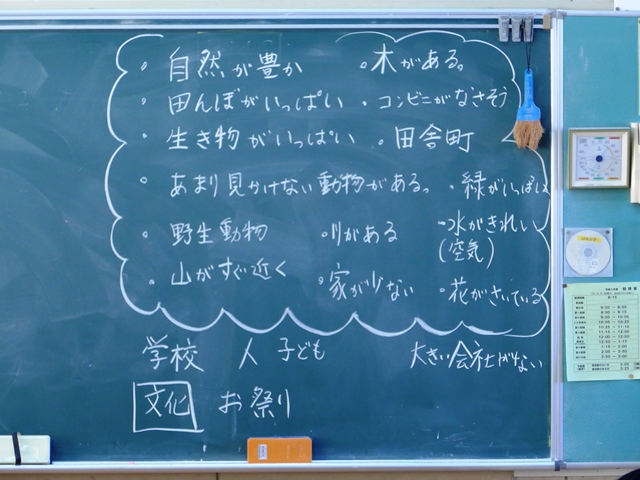 ・自然が豊か ・木がある。
・田んぼがいっぱい ・コンビニがなさそう
・生き物がいっぱい ・田舎町
・あまり見かけない動物がある。 ・緑がいっぱい
・野生動物 ・川がある ・水がきれい
(空気)
・山がすぐ近く ・家が少ない ・花がさいている
学校 人 子ども 大きい会社がない
文化 お祭り